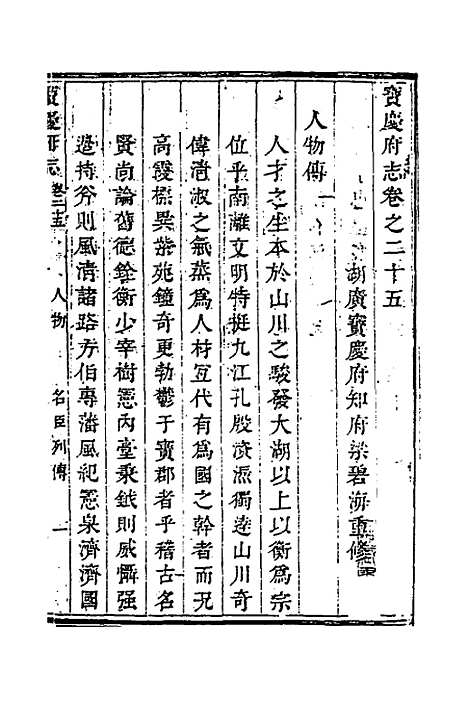 寶慶府志卷之二十五
湖廣寶慶府知府梁碧海重修
人物傳一
人才之生本於山川之駿發大湖以上以衡爲宗
位乎南離文明特挺九江孔殷資㵋獨遶山川奇
偉淸淑之氣蒸爲人材亙代有爲國之幹者而况
高霞標異紫苑鐘奇更勃鬱于寳郡者乎稽古名
賢尚論舊德銓衡少宰樹憲內臺秉鉞則威懾强
邊持斧則風清諸路方伯專藩風紀憲臬濟濟國
寶慶府志 卷二十五 人物 名臣列傳 一